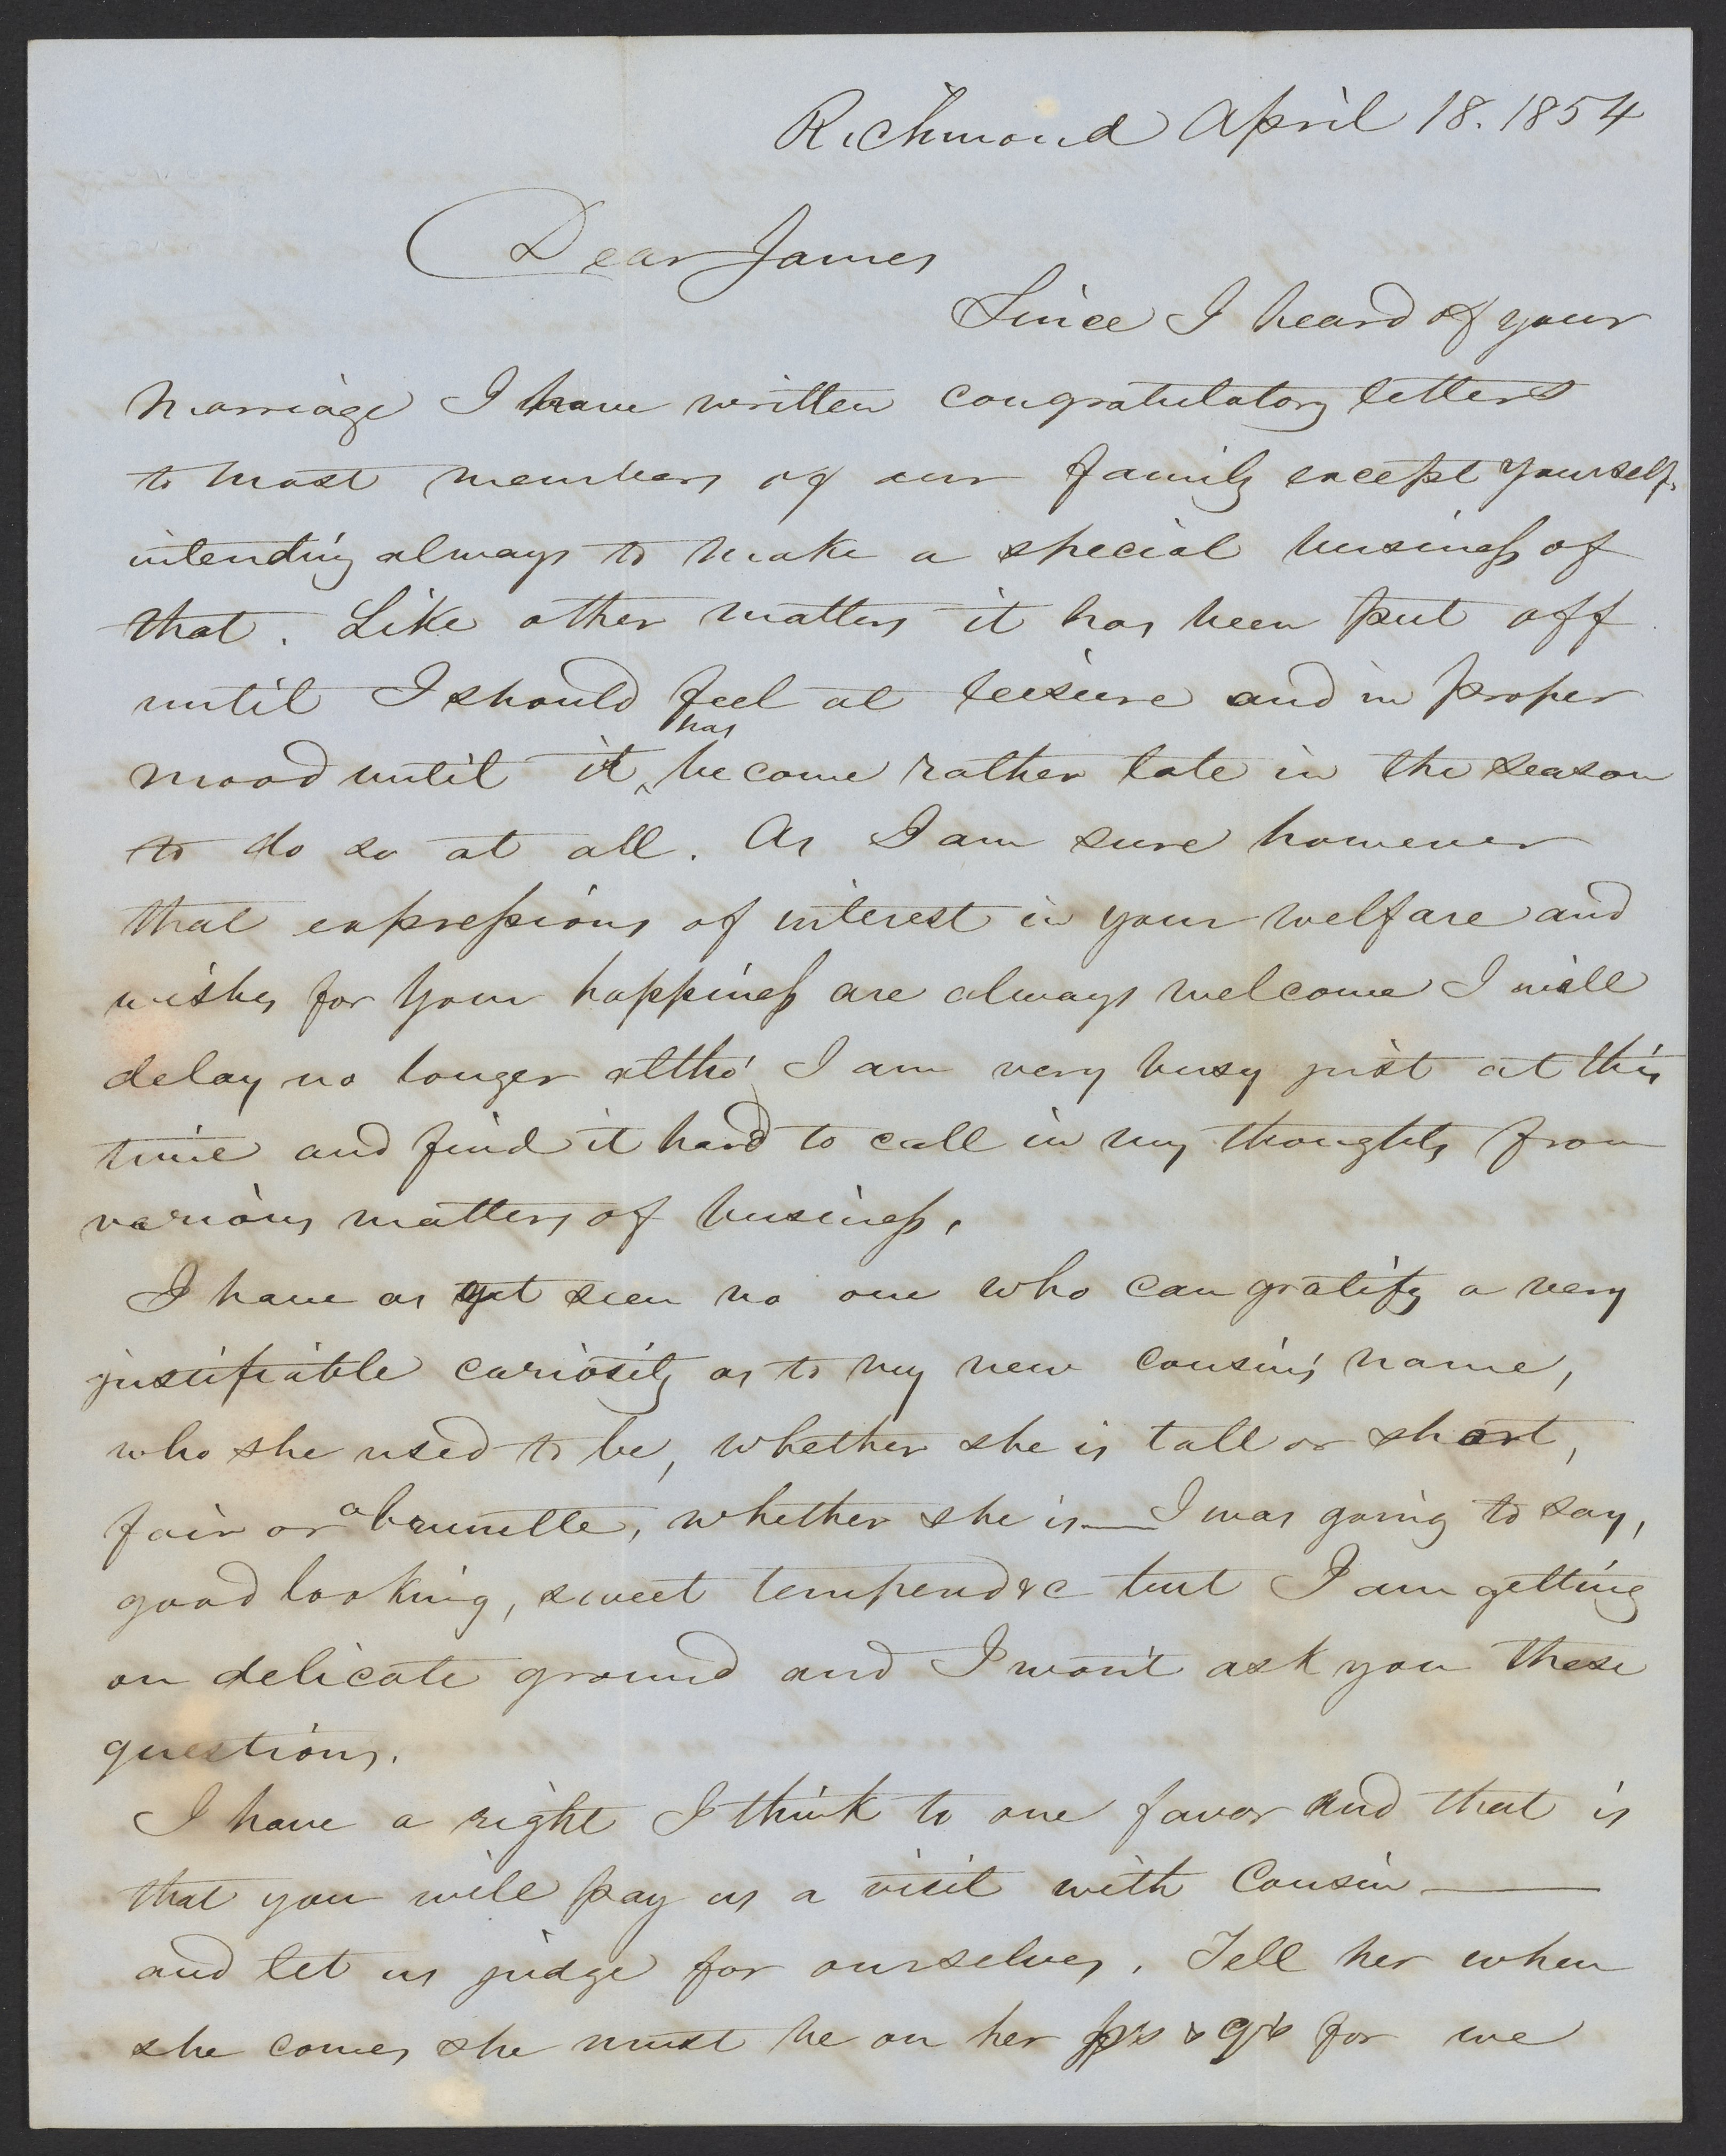 Richmond April 18. 1854
Dear James
Since I heard of your
marriage I have written congratulatory letters
to most members of our family except yourself,
intending always to make a special business of
that. Like other matters it has been put off
until I should feel at leisure and in proper
mood until it has become rather late in the season
to do so at all. As I am sure however
that expressions of interest in your welfare and
wishes for your happiness are always welcome I will
delay no longer altho' I am very busy just at this
time and find it hard to call in my thoughts from
various matters of business.
I have as yet seen no one who can gratify a very
justifiable curiosity as to my new cousin's name,
who she used to be, whether she is tall or short,
fair or a brunette, whether she is — I was going to say,
good looking, sweet tempered &c but I am getting
on delicate ground and I won't ask you these
questions.
I have a right I think to one favor and that is
that you will pay us a visit with Cousin ———
and let us judge for ourselves. Tell her when
she comes she must be on her p's & q's for we